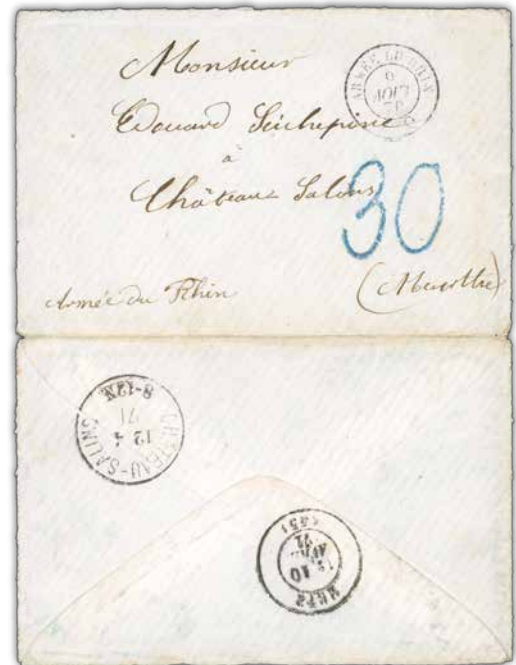 Monsieur
Edouard
à
Château Salins
(Meurthe)
Armée du Rhin
30
ARMÉE DU RHIN
AOUT
70
CHATEAU-SALINS
12 4
71
8-12N
METZ
10
AVRIL
71